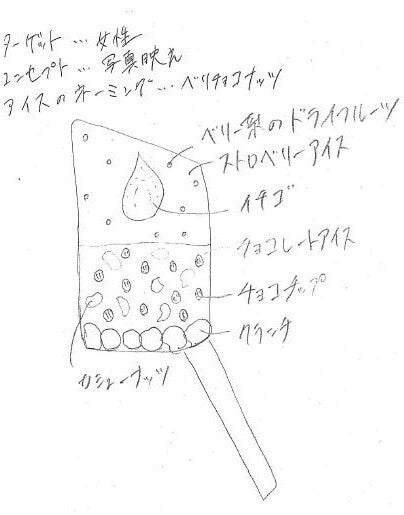 ターゲット…女性
コンセプト…写真映え
アイスのネーミング…ベリチョコナッツ
ベリー系のドライフルーツ
ストロベリーアイス
イチゴ
チョコレートアイス
チョコチップ
クランチ
カシューナッツ